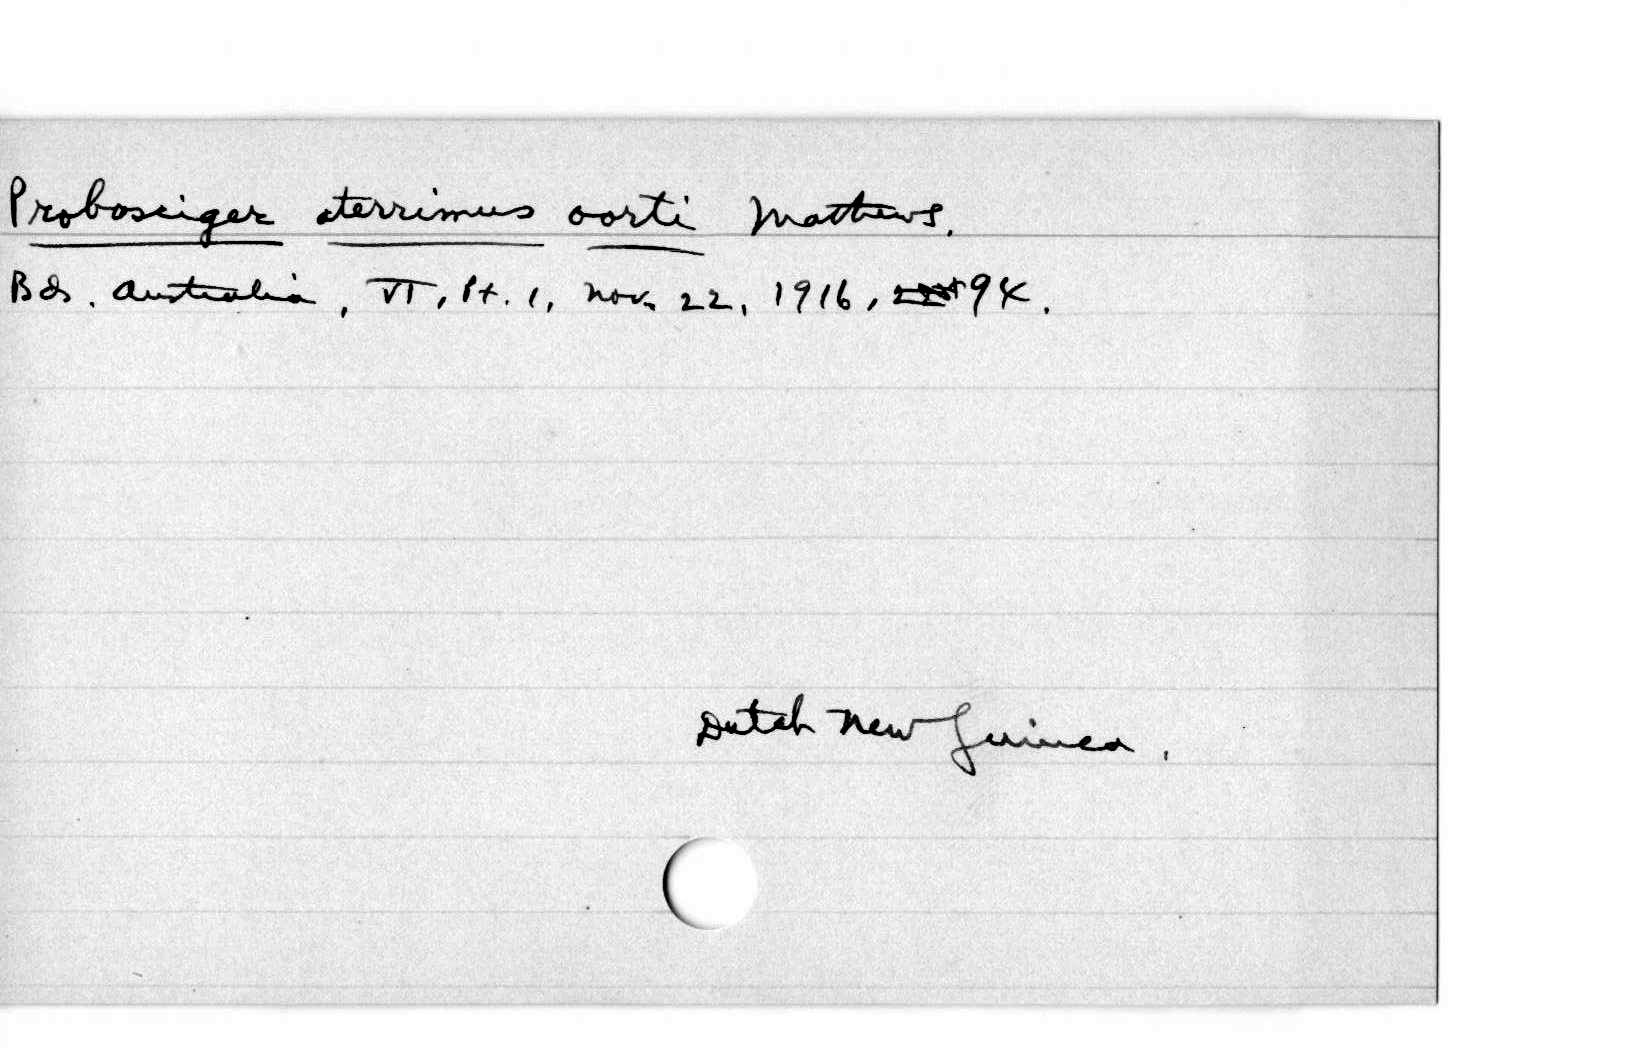 Probosciger aterrimus oorti Mathews.
Bds. Australia, VI, Pt. 1, Nov. 22, 1916, 94.
Dutch New Guinea.